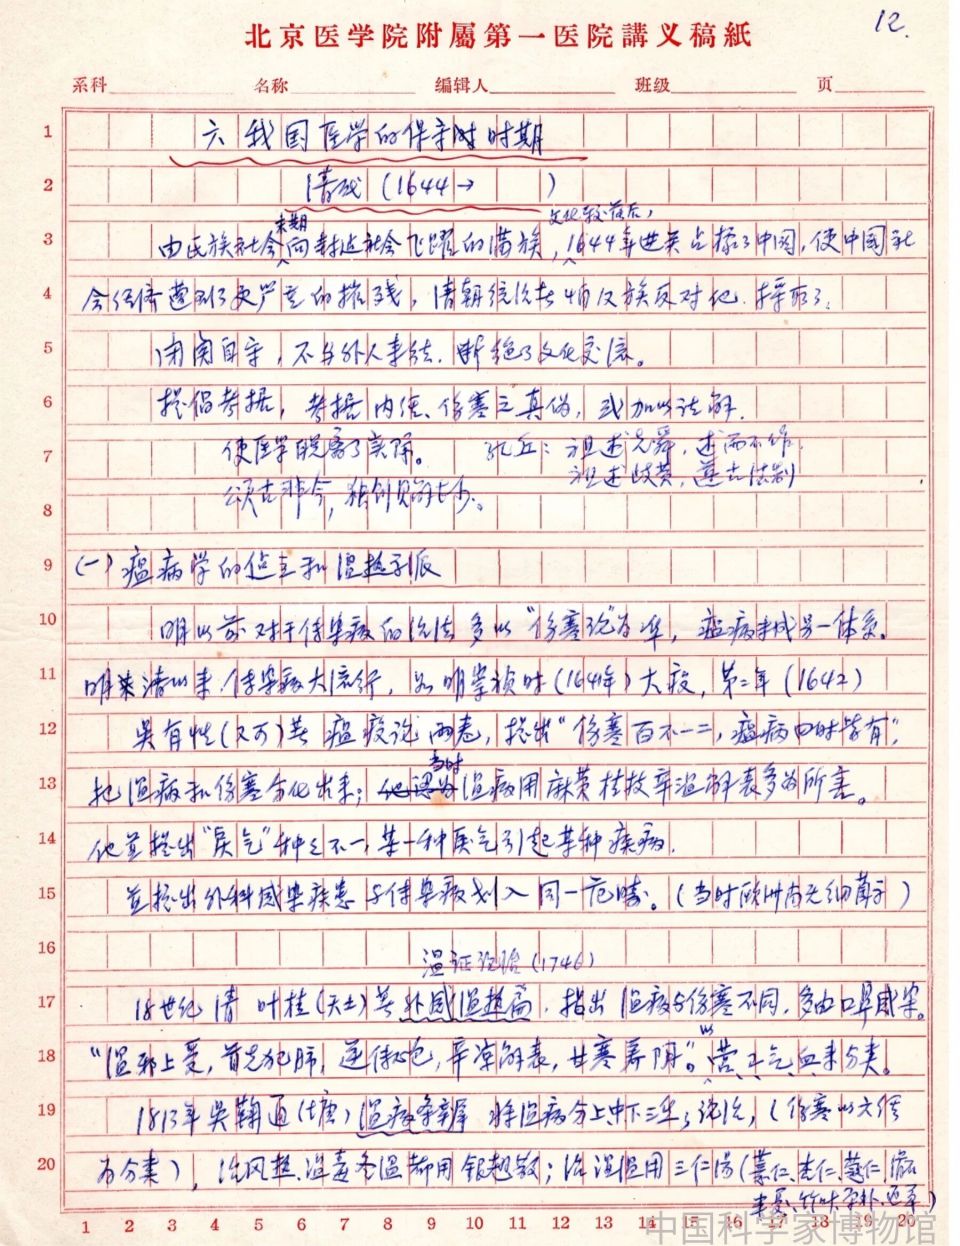 12.
北京医学院附屬第一医院講义稿紙
系科 名称 编辑人 班级 页
1 六 我国医学的保守时期
2 清代 (1644→ )
末期 文化较落后,
3 由氏族社会向封建社会飞躍的满族, 1644年进关占据了中国, 使中国社
4 会经济遭到了更严重的摧残, 清朝统治者怕汉族反对他. 採取了:
5 闭关自守, 不与外人来往. 断绝了文化交流。
6 提倡考据, 考据内经、伤寒之真伪, 或加以注解.
7 使医学脱离了实际。 孔丘: 祖述尧舜, 述而不作.
祖述歧黄, 遵古法制
8 颂古非今, 独创见解少。
9 (一) 瘟病学的建立和温热学派
10 明以前对于传染病的说法多以"伤寒论"为准, 瘟病未成另一体系。
11 明末清以来, 传染病大流行, 如明崇祯时 (1641年) 大疫, 第二年 (1642)
12 吴有性 (又可) 著瘟疫论两卷, 提出"伤寒百不一二, 瘟病四时皆有",
当时
13 把温病和伤寒分化出来; 温病用麻黄桂枝辛温解表多为所害。
14 他并提出"戾气"种之不一, 某一种戾气引起某种疾病.
15 並提出外科感染疾患与传染病划入同一范畴。(当时欧洲尚无细菌学)
16
温证论治 (1746)
17 18世纪 清 叶桂 (天士) 著外感温热篇, 指出温病与伤寒不同, 多由口鼻感染。
18 "温邪上受, 首先犯肺, 逆传心包, 辛凉解表, 甘寒养阴"。以营卫气血来分类。
19 1813年吴鞠通 (塘) 温病条辨 将温病分上中下三焦论治, (伤寒以六经
20 为分类), 治风热、温毒冬温都用银翘散; 治湿温用三仁汤 (薏仁、杏仁、蔻仁、滑石
半夏、竹叶、厚朴、通草)
1 2 3 4 5 6 7 8 9 10 11 12 13 14 15 16 17 18 19 20
中国科学家博物馆